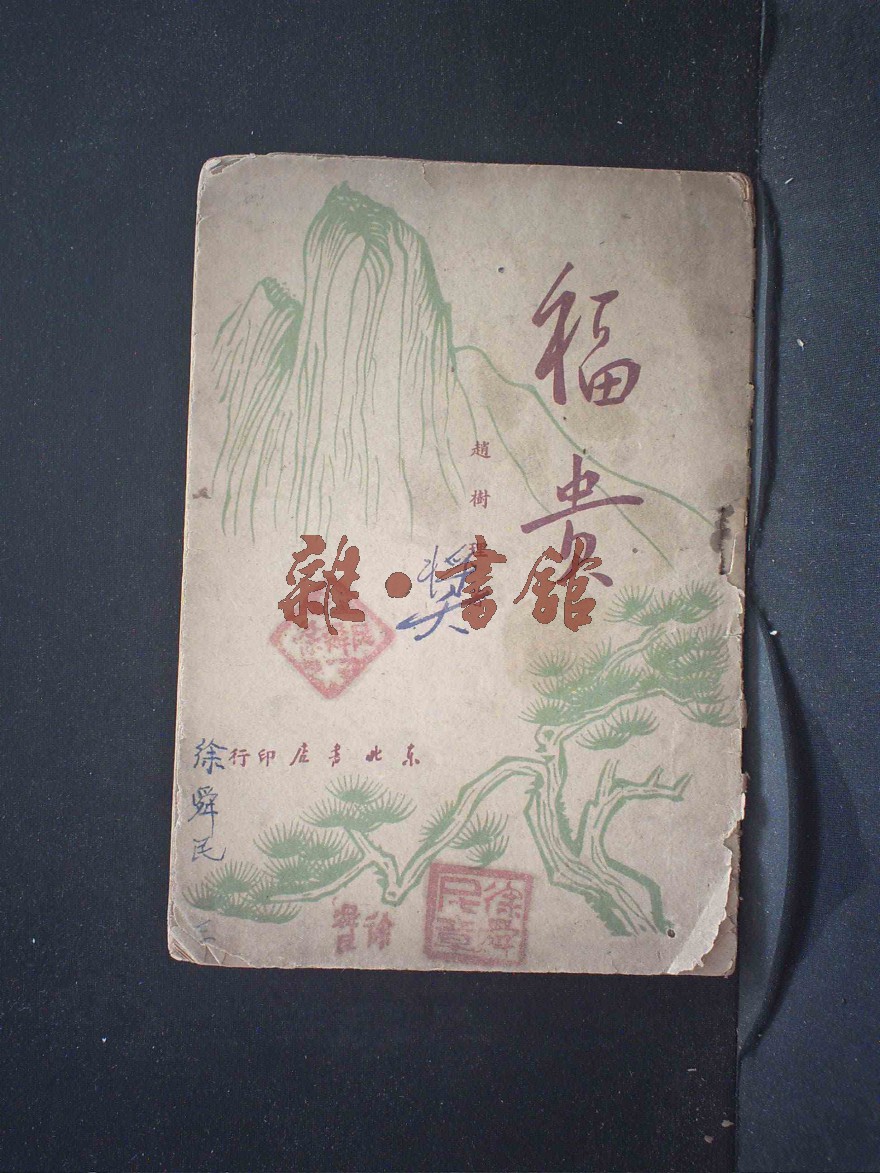 福贵
趙樹理
奬
雜·書館
东北书店印行
徐舜民
三
徐舜
民章
徐